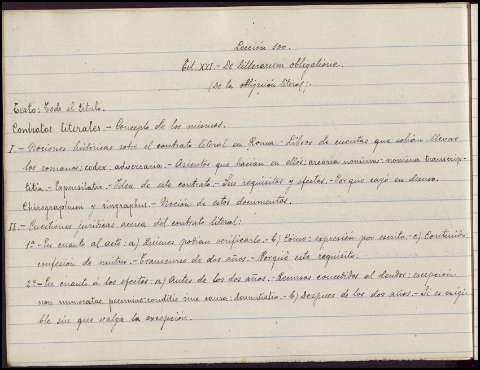 Lección 100.
Tít XXI.- De litterarum obligatione.
(De la obligación literal).
Texto: Todo el título.
Contratos literales.- Concepto de los mismos.
I.- Nociones históricas sobre el contrato literal en Roma.- Libros de cuentas que solían llevar
los romanos: codex: adversaria.- Asientos que hacían en ellos: arcaria nomina: nomina transcrip-
titia.- Expensilatio.- Idea de este contrato.- Sus requisitos y efectos.- Porque cayó en desuso.
Chirographum y singraphis.- Noción de estos documentos.
II.- Cuestiones jurídicas acerca del contrato literal:
1º- En cuanto al acto: a) Quienes podían verificarlo.- b) Cómo: expresión por escrito.- c) Contenido:
confesión de mutuo.- Transcurso de dos años.- Porqué este requisito.
2º- En cuanto a los efectos: a) Antes de los dos años.- Recursos concedidos al deudor: excepción
non numeratae pecuniae: condictio sine causa: .- b) Después de los dos años.- Si es exigi
ble sin que valga la excepción.